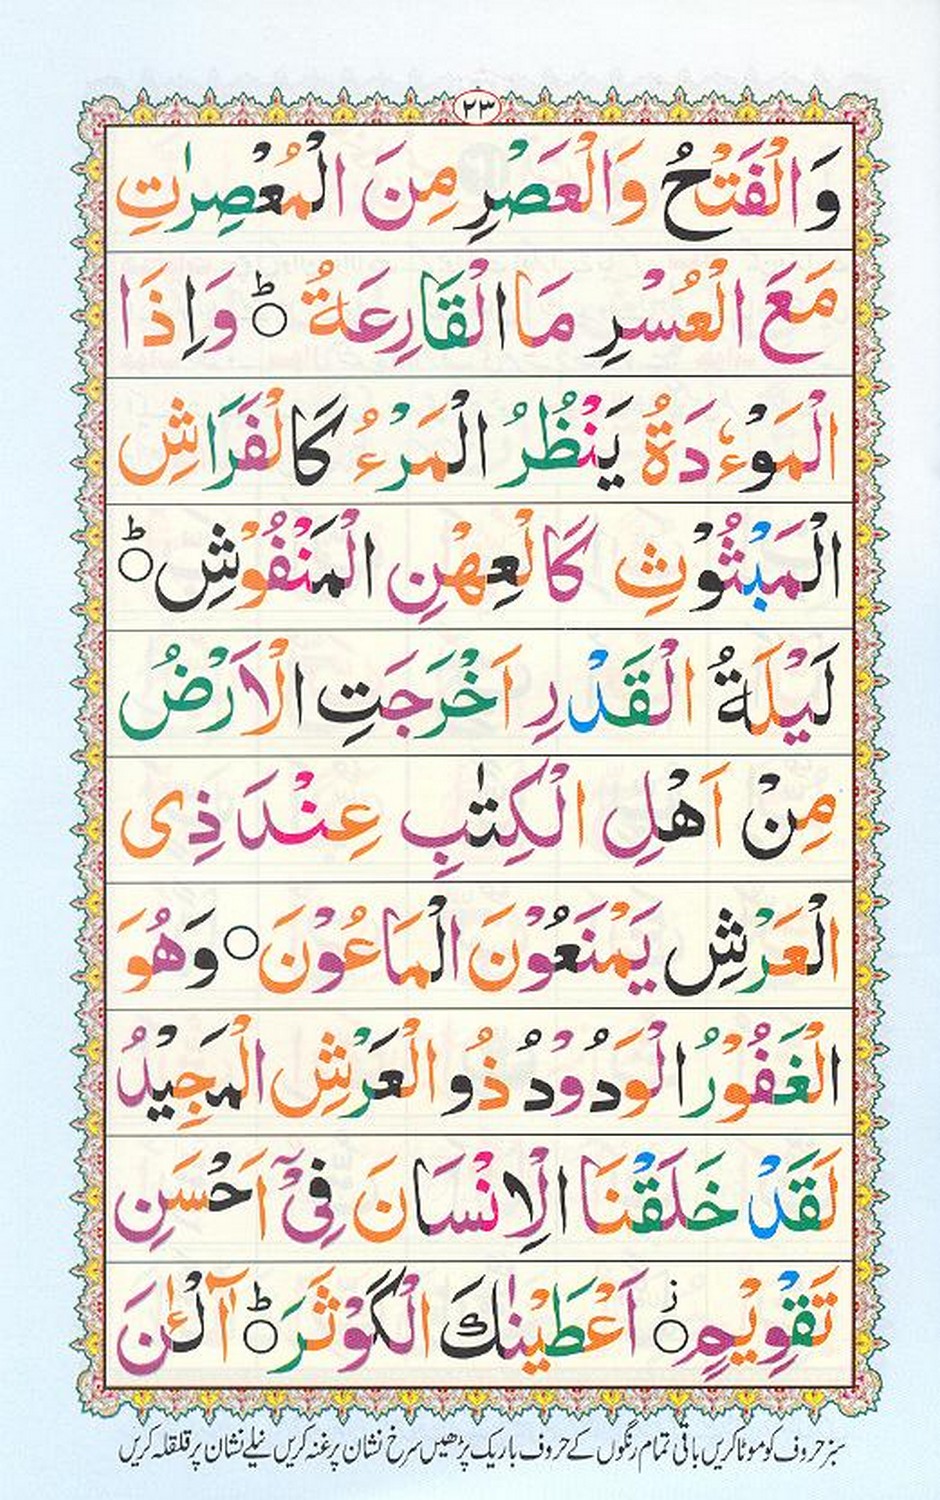 ٢٣
وَالْفَتْحُ وَالْعَصْرِ مِنَ الْمُعْصِرٰتِ
مَعَ الْعُسْرِ مَا الْقَارِعَةُ ؕ وَاِذَا
الْمَوْءٗدَةُ يَنْظُرُ الْمَرْءُ كَالْفَرَاشِ
الْمَبْثُوْثِ كَالْعِهْنِ الْمَنْفُوْشِ ؕ
لَيْلَةُ الْقَدْرِ اَخْرَجَتِ الْاَرْضُ
مِنْ اَهْلِ الْكِتٰبِ عِنْدَ ذِى
الْعَرْشِ يَمْنَعُوْنَ الْمَاعُوْنَ ۝ وَهُوَ
الْغَفُوْرُ الْوَدُوْدُ ذُو الْعَرْشِ الْمَجِيْدُ
لَقَدْ خَلَقْنَا الْاِنْسَانَ فِىْۤ اَحْسَنِ
تَقْوِيْمٍ ۝ؗ اَعْطَيْنٰكَ الْكَوْثَرَ ؕ آٰلْـٰٔنَ
سبز حروف کو موٹا کریں باقی تمام رنگوں کے حروف باریک پڑھیں سرخ نشان پر غنہ کریں نیلے نشان پر قلقلہ کریں